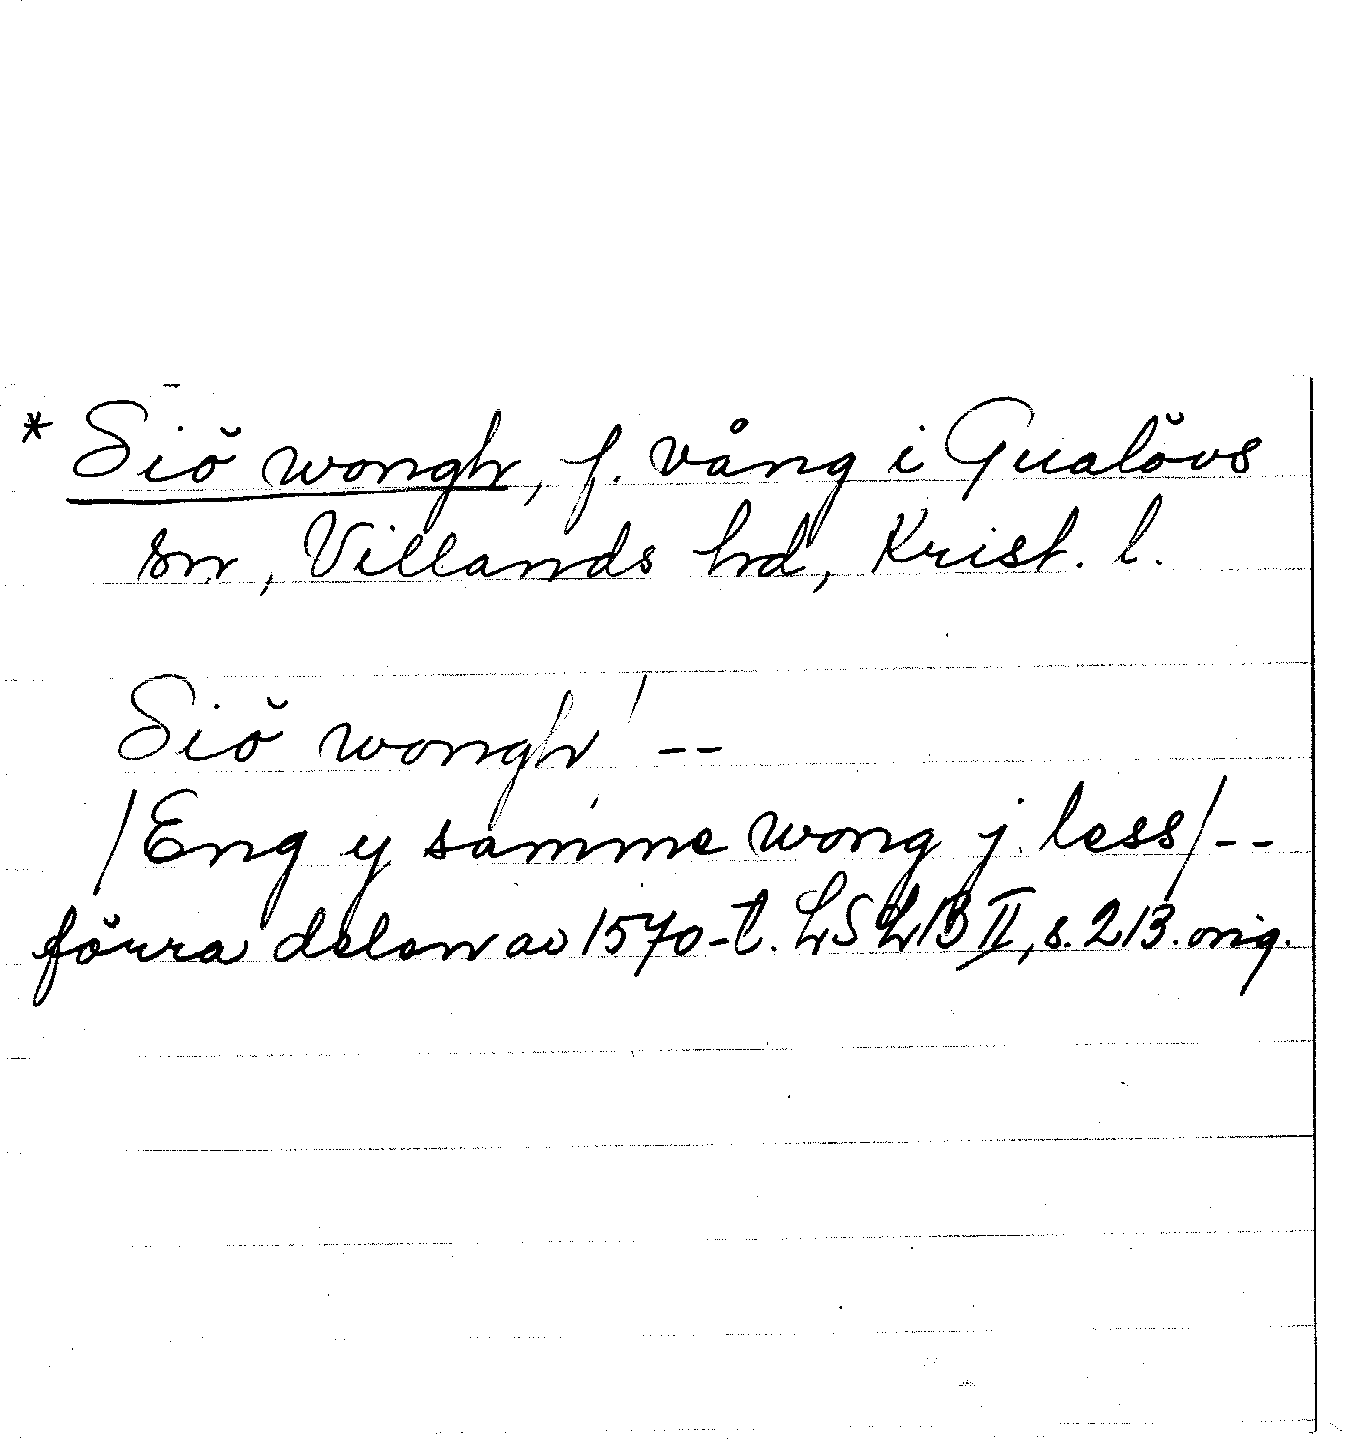 * Siö wongh, f. vång i Gualövs
sn, Villands hd, Krist. l.
Siö wongh / --
/ Eng y samme wong j less / --
förra delen av 1570-t. LSLB II, s. 213. orig.